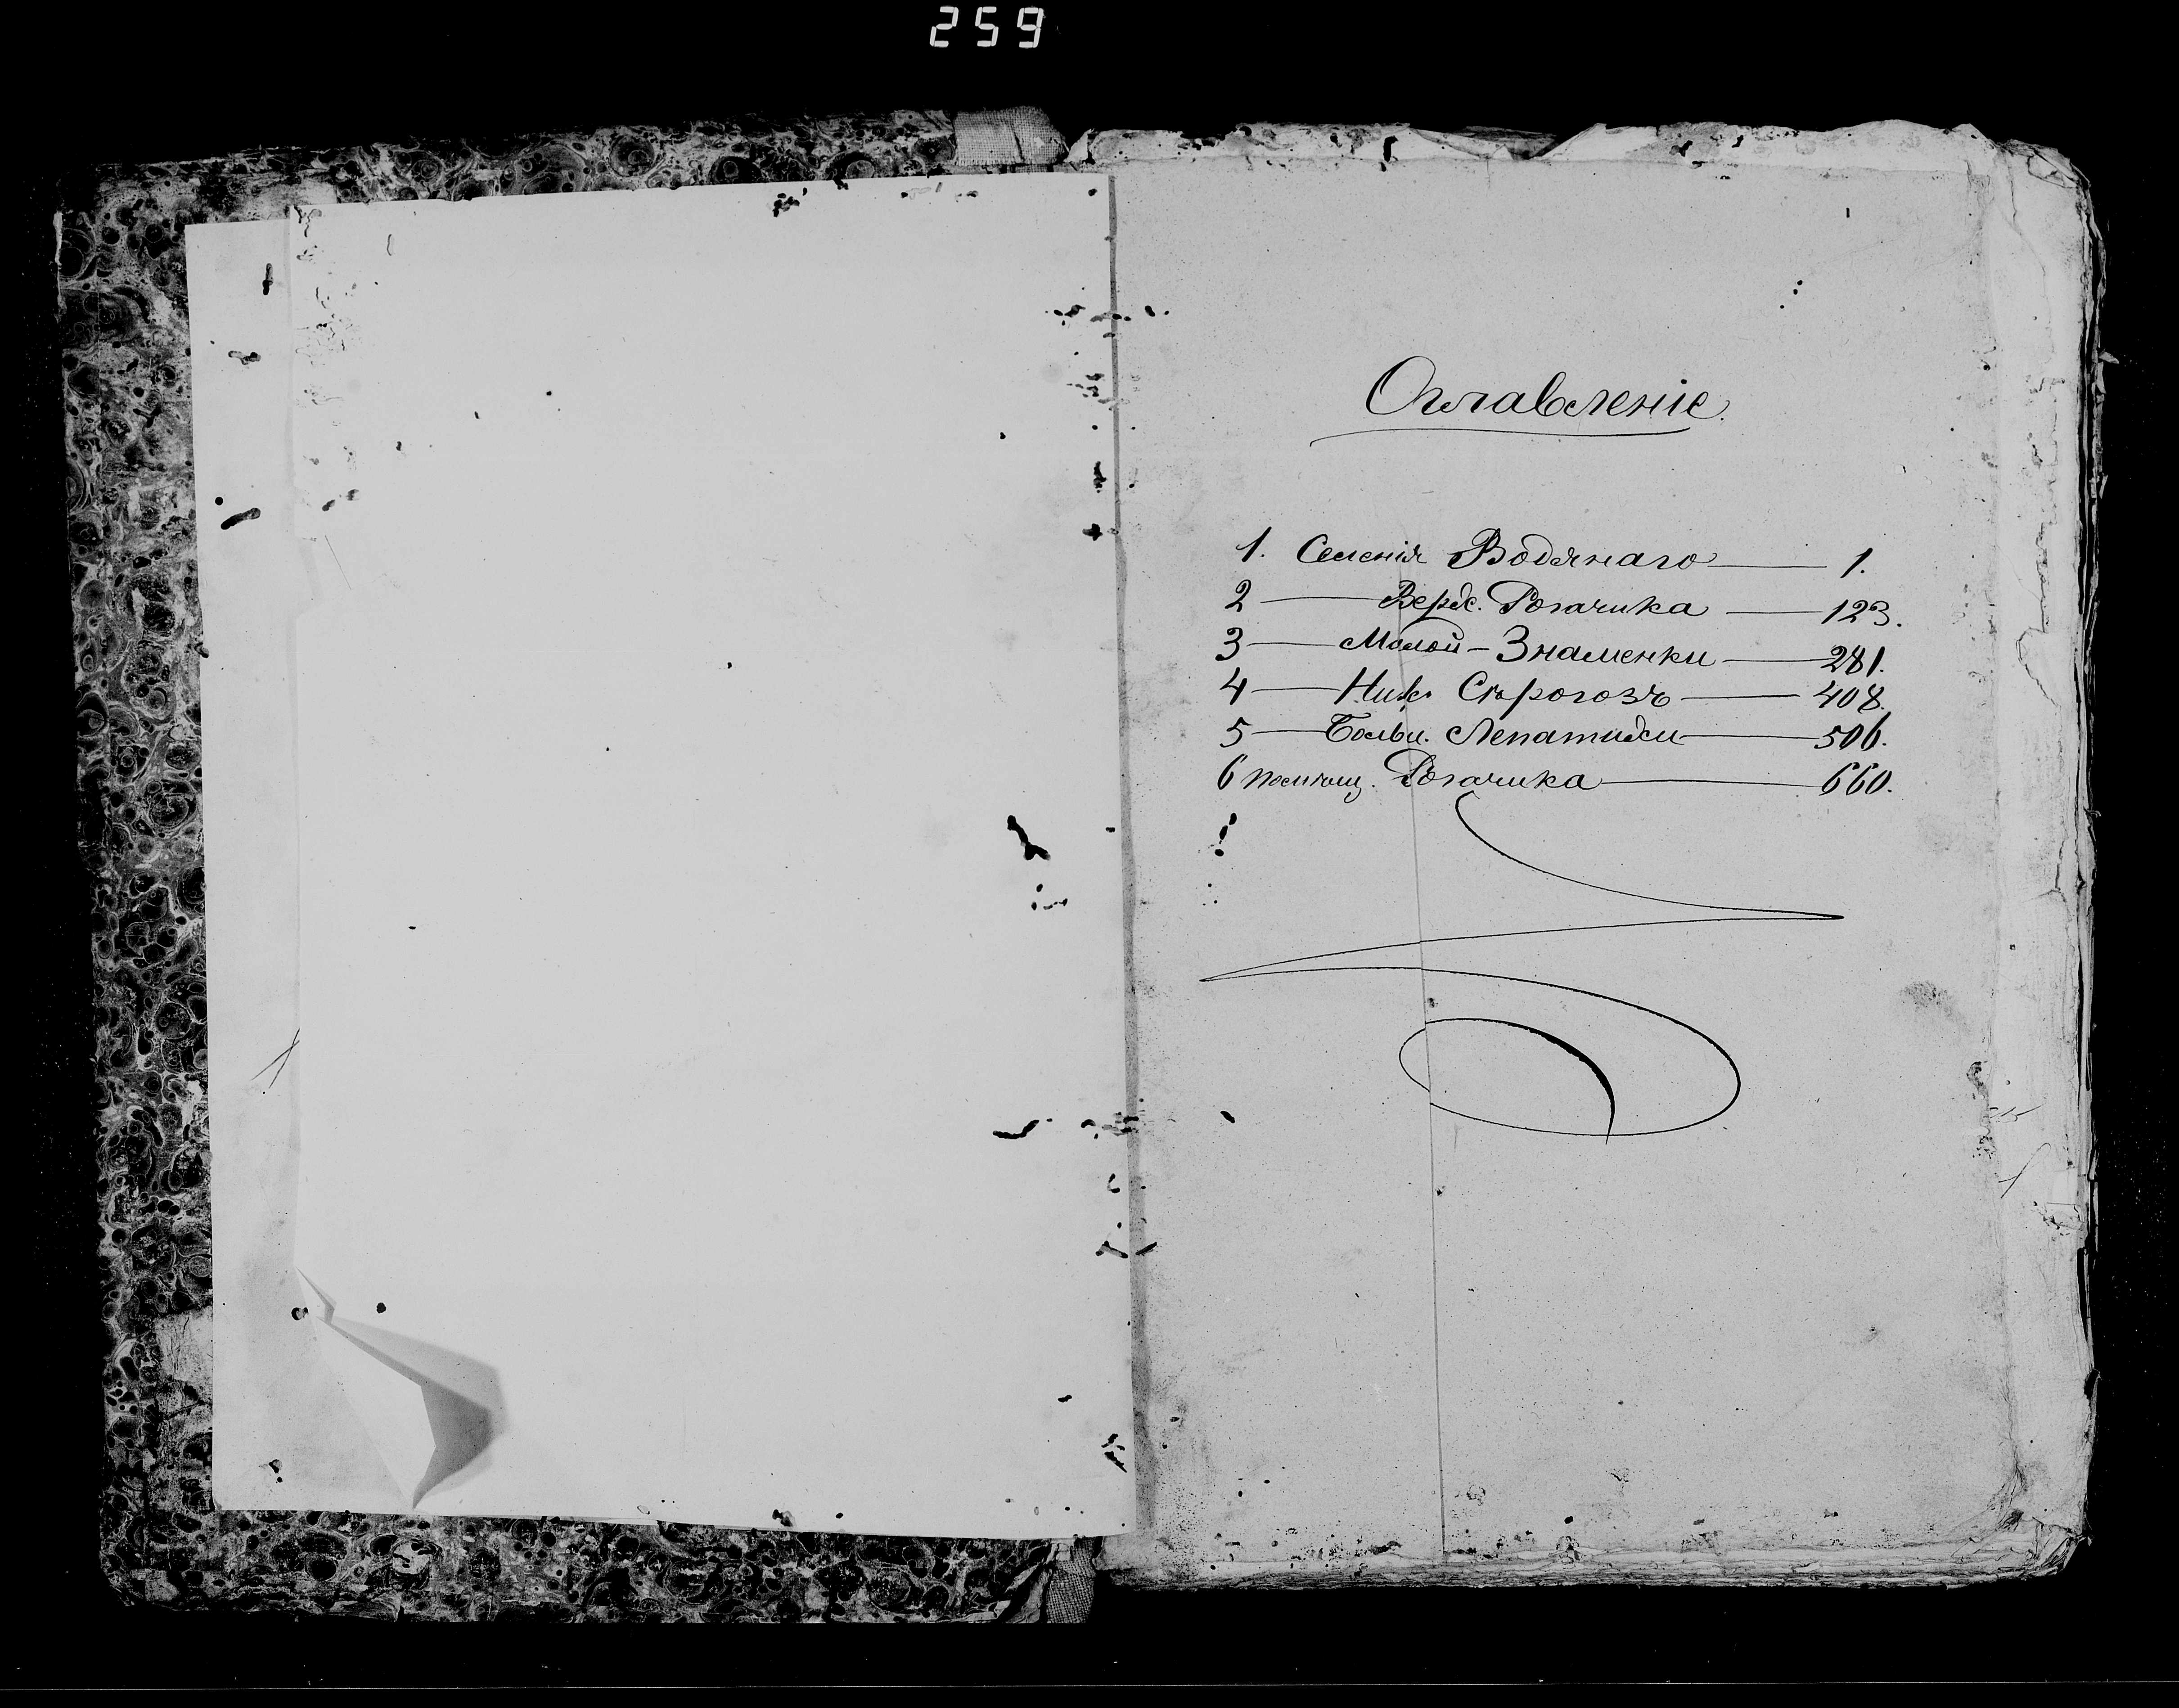 259
Оглавленіе.
1. Селенія Водянаго — 1.
2 — Верх. Рогачика — 123.
3 — Малой - Знаменки — 281.
4 — Ниж. Сѣрогозъ — 408.
5 — Больш. Лепатихи — 506.
6 Рогачика — 660.